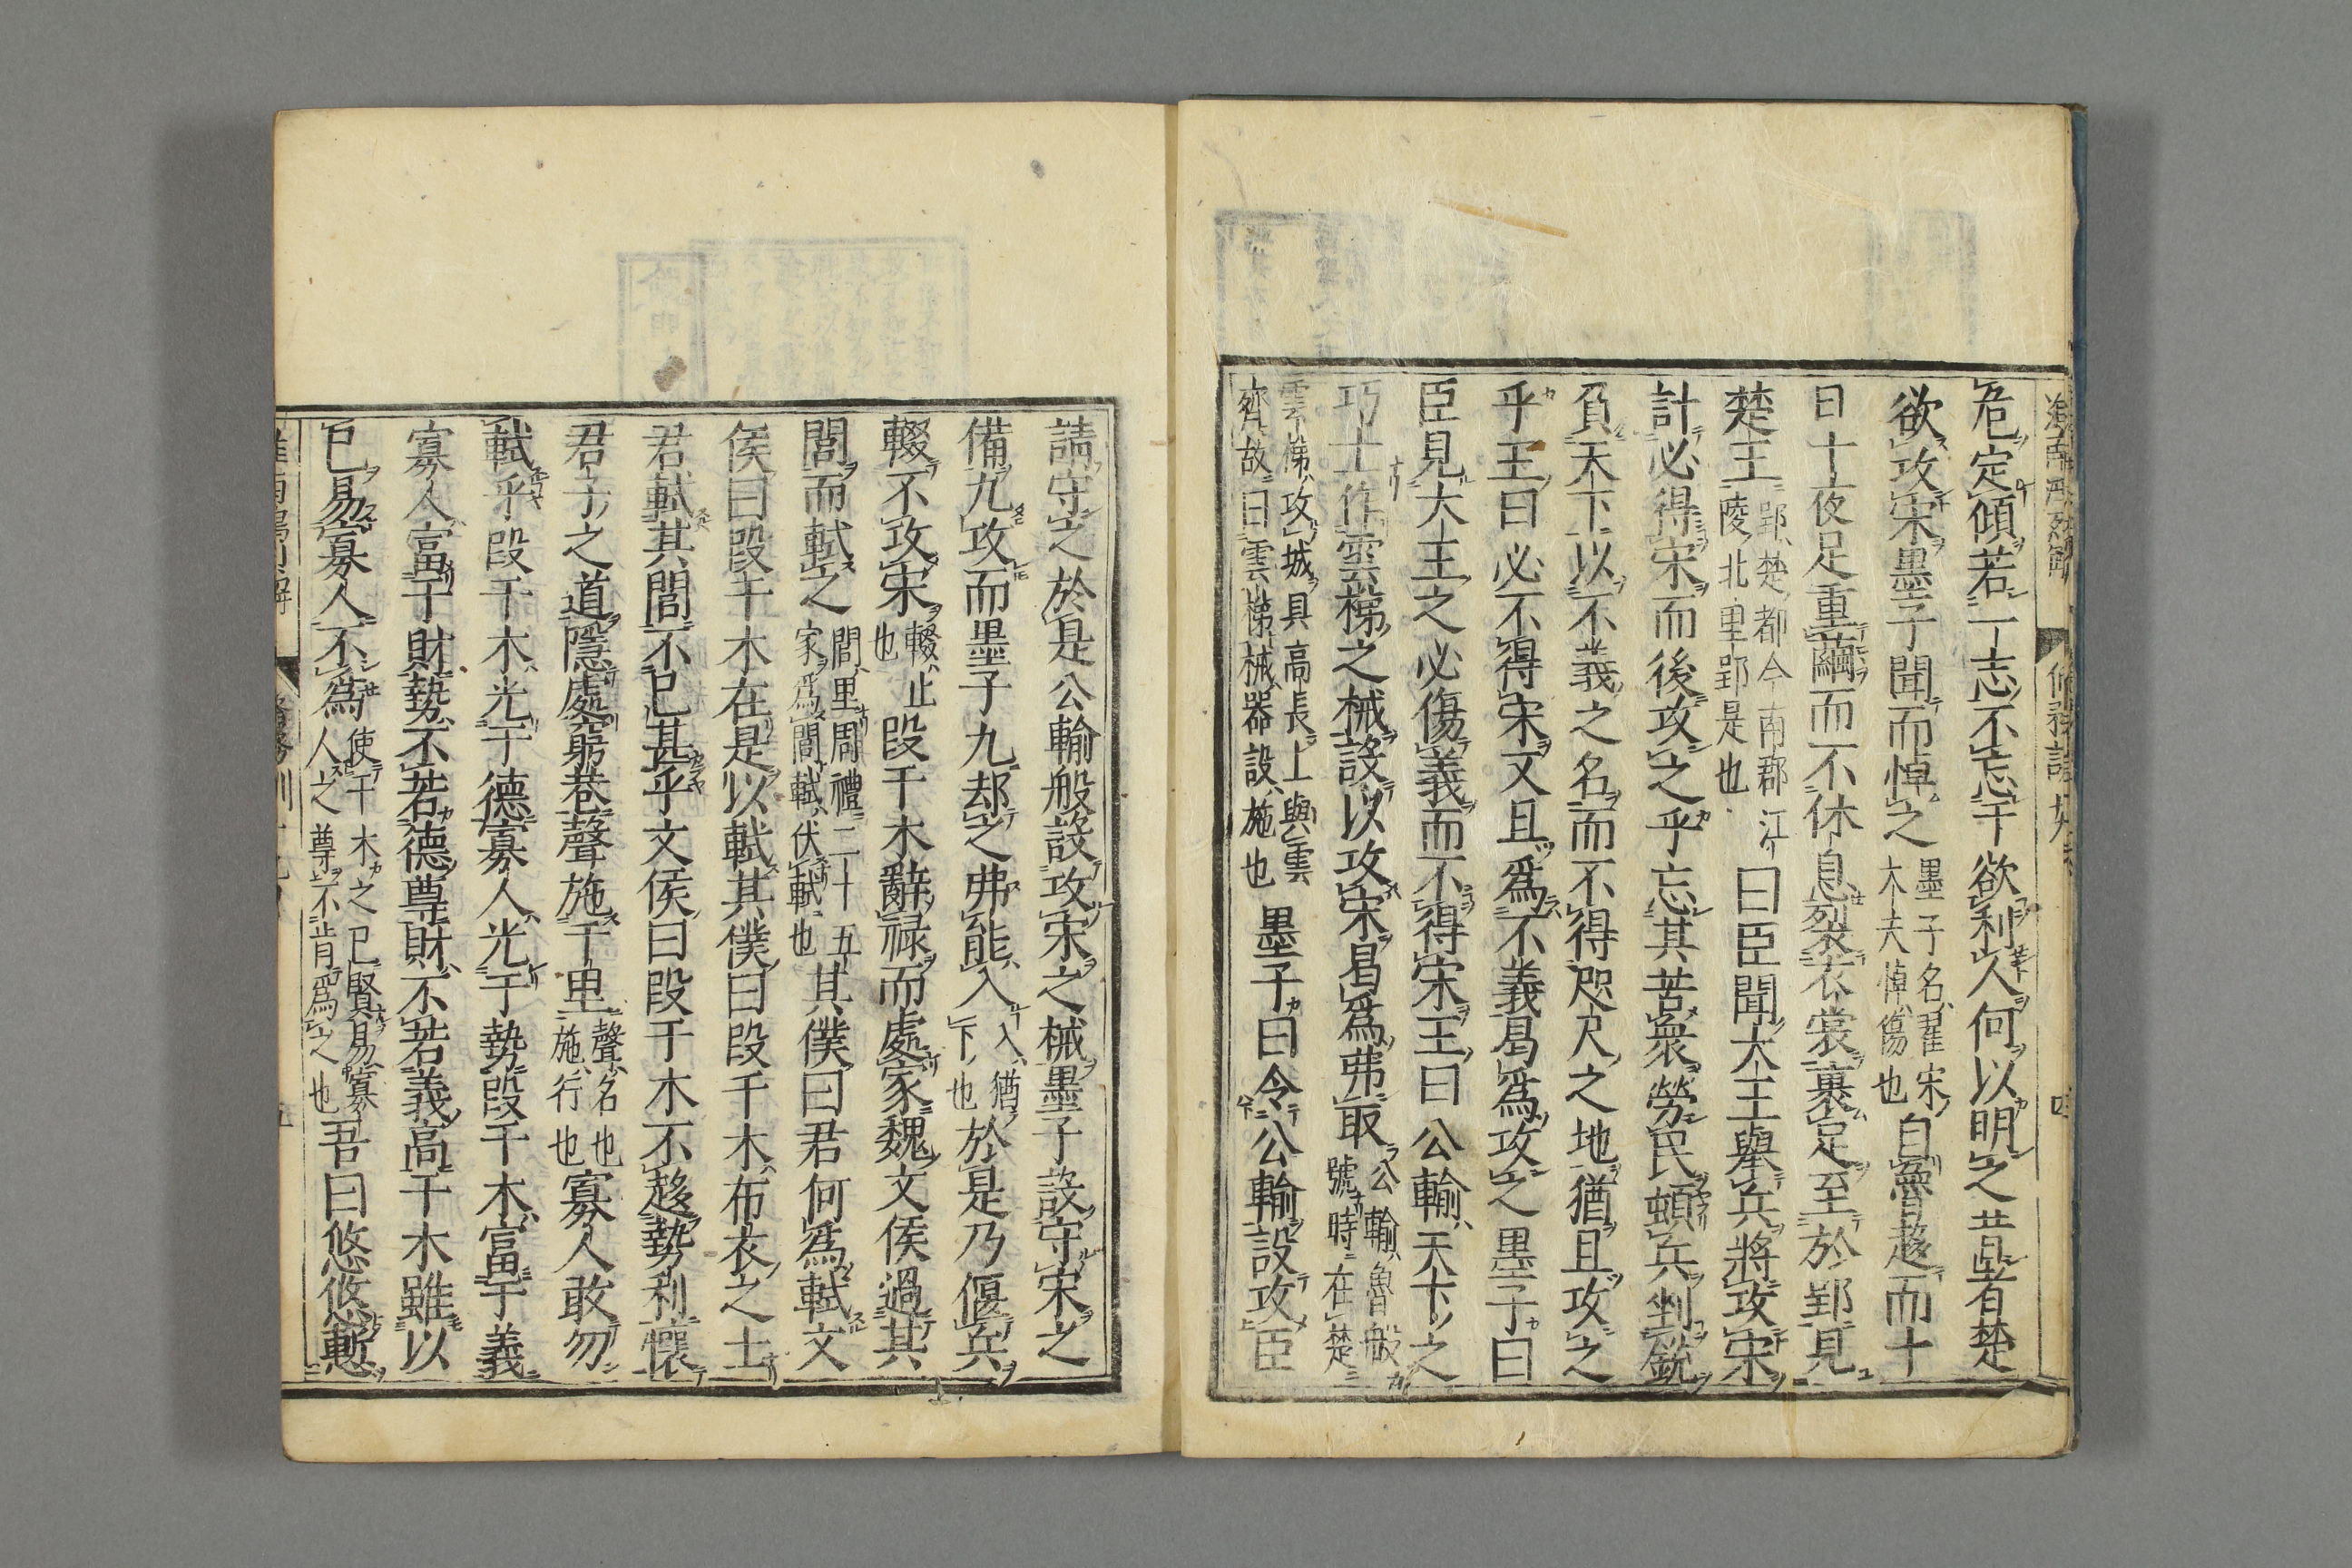 危定傾若一志不忘于欲利人何以明之昔者楚
欲攻宋墨子聞而悼之墨子名翟宋大夫悼傷也自魯趍而十
日十夜足重繭而不休息裂衣裳裹足至於郢見
楚王郢楚都今南郡江陵北里郢是也曰臣聞大王舉兵將攻宋
計必得宋而後攻之乎忘其苦衆勞民頓兵剉銳
負天下以不義之名而不得咫尺之地猶且攻之
乎王曰必不得宋又且爲不義曷爲攻之墨子曰
臣見大王之必傷義而不得宋王曰公輸天下之
巧士作雲梯之械設以攻宋曷爲弗取公輸魯般號時在楚
雲梯攻城具高長上與雲齊故曰雲梯械器設施也墨子曰令公輸設攻臣
請守之於是公輸般設攻宋之械墨子設守宋之
備九攻而墨子九却之弗能入入猶下也於是乃偃兵
輟不攻宋輟止也段干木辭祿而處家魏文侯過其
閭而軾之閭里周禮二十五家爲閭軾伏軾也其僕曰君何爲軾文
侯曰段干木在是以軾其僕曰段干木布衣之士
君軾其閭不已甚乎文侯曰段干木不趍勢利懷
君子之道隱處窮巷聲施千里聲名也施行也寡人敢勿
軾乎段干木光于德寡人光于勢段干木富于義
寡人富于財勢不若德尊財不若義高干木雖以
已易寡人不爲使干木之已賢易寡人之尊不肯爲之也吾曰悠悠慙